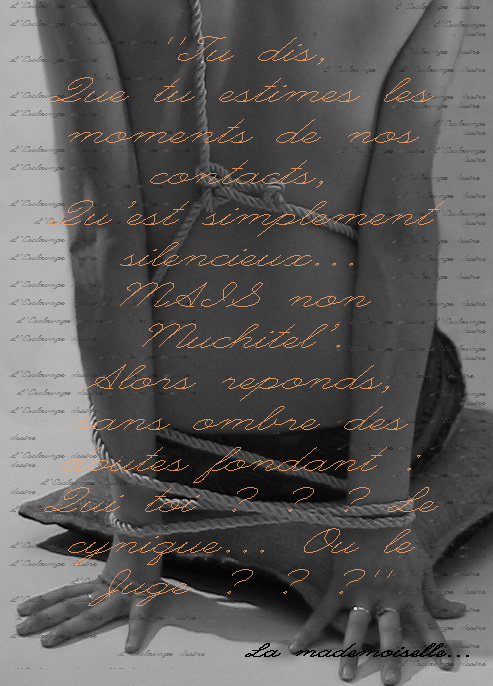 "Tu dis,
Que tu estimes les
moments de nos
contacts,
Qu'est simplement
silencieux...
MAIS non
Muchitel'.
Alors reponds,
sans ombre des
doutes fondant :
Qui toi ? ? ? Le
cynique... Ou le
Juge ? ? ?"
La mademoiselle...